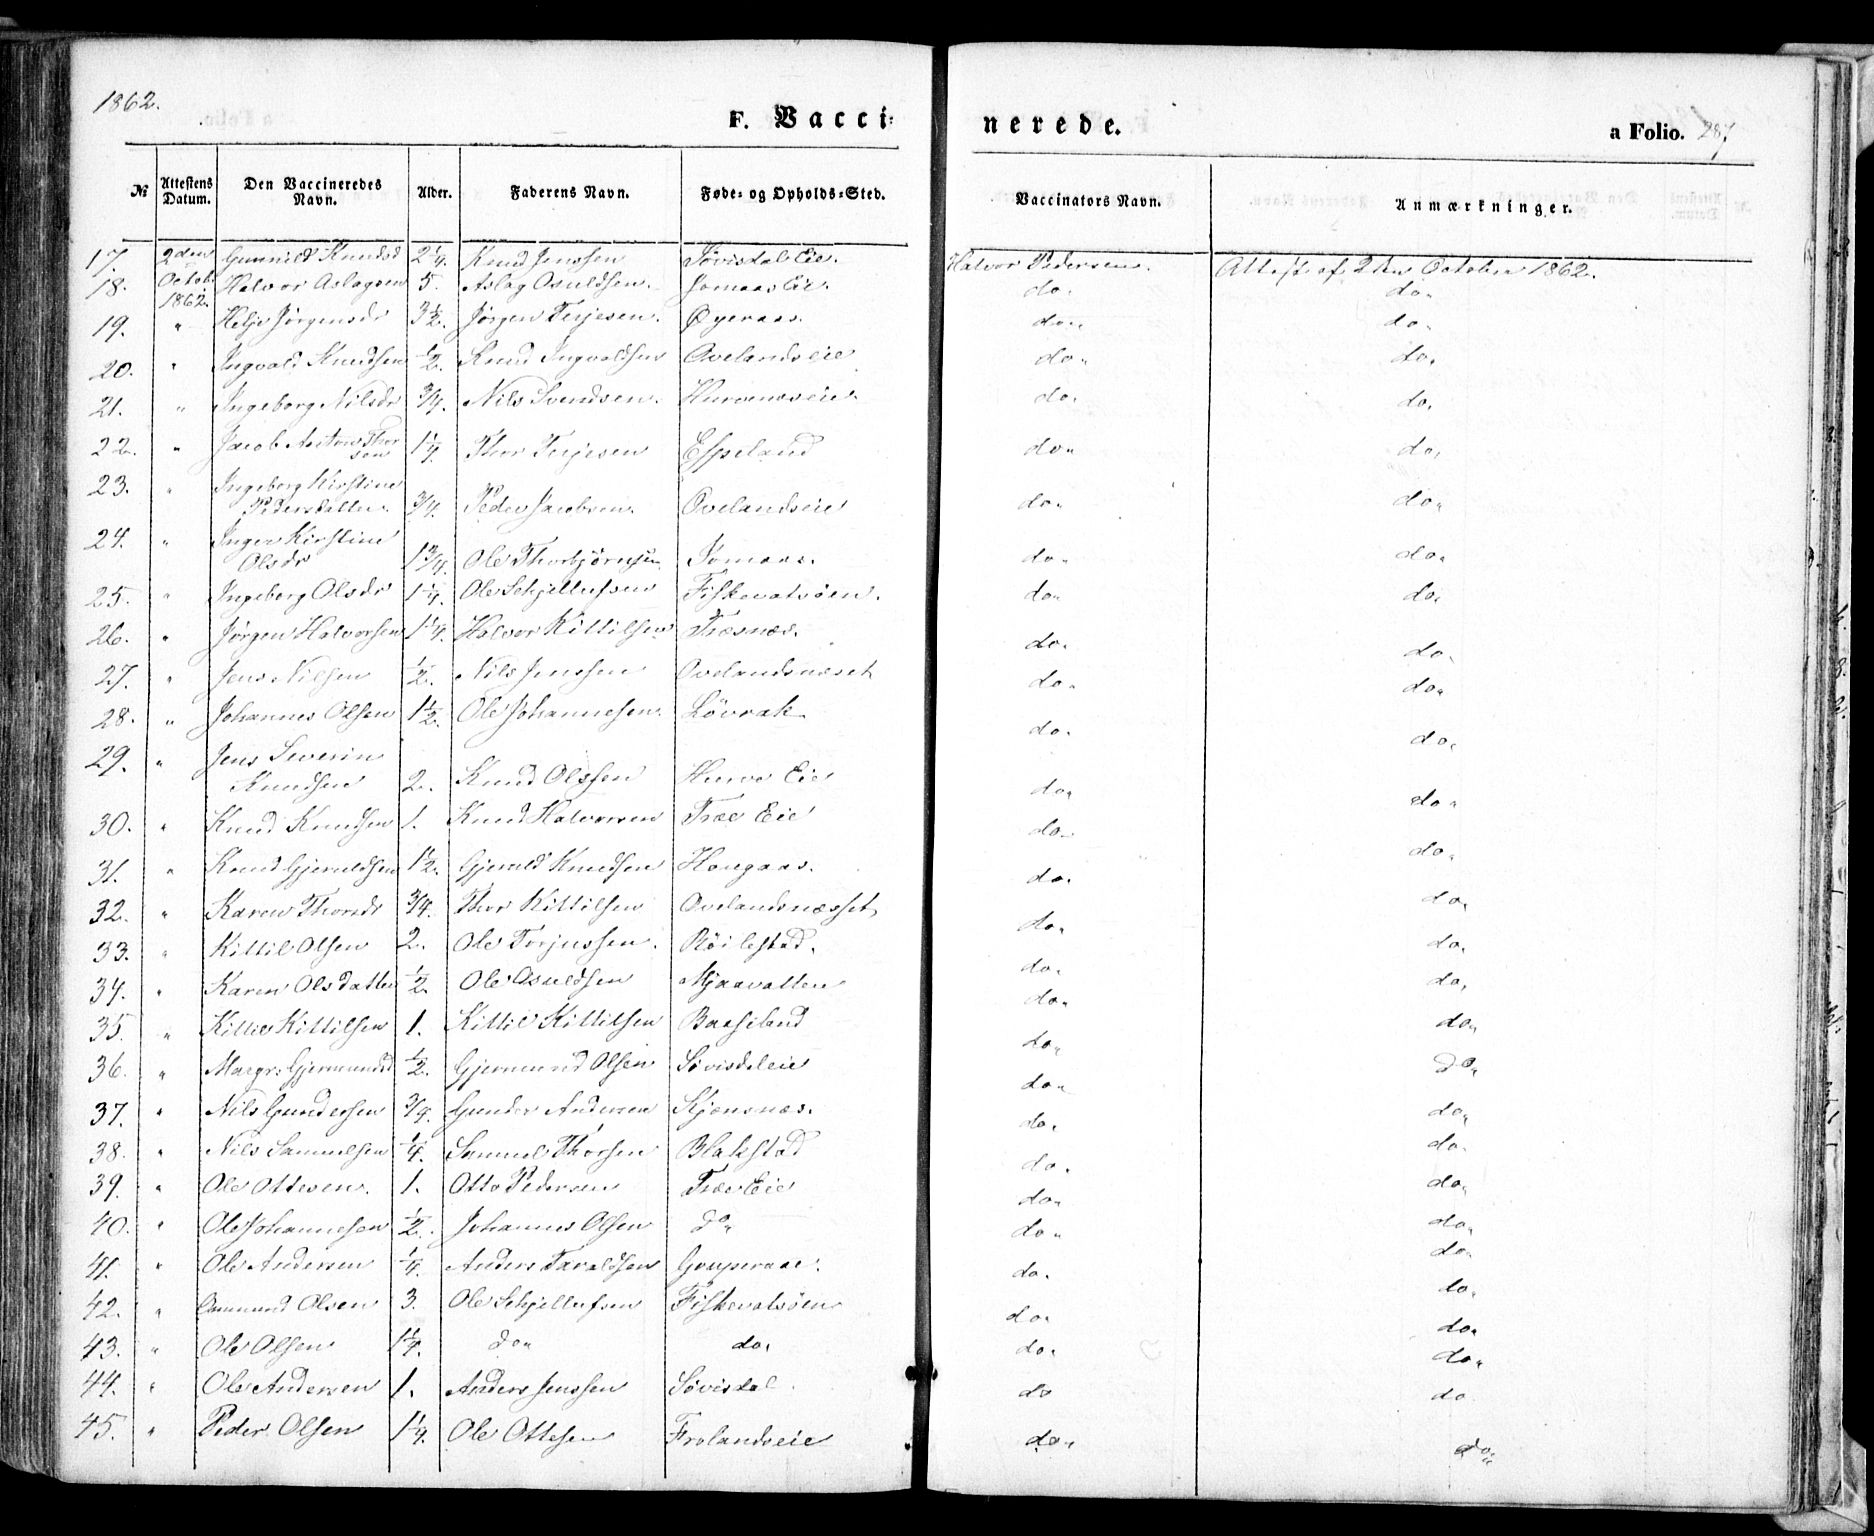 1862.
F. Vacci-
nerede.
a Folio. 287
№ Attestens Datum. Den Vaccineredes Navn. Alder. Faderens Navn. Føde- og Opholds-Sted. Vaccinators Navn. Anmærkninger.
17. 2den Octob. 1862. Gunnild Knudsd 2 1/4 Knud Jenssen Søvisdal Eie. Halvor Pedersen. Attest af 2den October 1862.
18. Halvor Aslagsen 5. Aslag Osuldsen. Jomaas Eie. do. do.
19. " Helje Jørgensdr 3 1/2. Jørgen Terjesen. Øyeraas. do. do.
20. " Ingvald Knudsen 1/2. Knud Ingvaldsen Ovelandseie do. do.
21. " Ingeborg Nilsdr 3/4. Nils Svendsen. Hurvenseie. do. do.
22. " Jacob Anton Thorsen 1 1/4. Thor Terjesen Espeland do. do.
23. " Ingeborg Kirstine
Pedersdatter. 3/4. Peder Jacobsen. Ovelandseie do. do.
24. " Inger Kirstine
Olsdr 1 3/4. Ole Thorbjørnsen Jomaas. do. do.
25. " Ingeborg Olsdr 1 1/4. Ole Schjellufsen Fiskevatsøen. do. do.
26. " Jørgen Halvorsen 1 1/4. Halvor Kittilsen Træsnæs. do. do.
27. " Jens Nilsen 1/2. Nils Jenssen Ovelandsnæset do. do.
28. " Johannes Olsen 1 1/2. Ole Johannesen. Løvrak do. do.
29. " Jens Severin
Knudsen 2. Knud Olssen Hurve Eie do. do.
30. " Knud Knudsen 1. Knud Halvorsen Træe Eie do. do.
31. " Knud Gjeruldsen 1 1/2. Gjeruld Knudsen Hougaas. do. do.
32. " Karen Thorsdr 3/4. Thor Kittilsen Ovelandsnæsset do. do.
33. " Kittil Olsen 2. Ole Terjussen. Røilestad. do. do.
34. " Karen Olsdatter 1/2. Ole Osuldsen Mjaavatten do. do.
35. " Kittil Kittilsen 1. Kittil Kittilsen Baaseland do. do.
36. " Margr: Gjermundsd 1/2. Gjermund Olsen Søvisdaleie do. do.
37. " Nils Gundersen 3/4. Gunder Andersen Kjønsnæs. do. do.
38. " Nils Samuelsen 1/4. Samuel Thorsen Blakstad do. do.
39. " Ole Ottesen. 1. Otto Pedersen Træe Eie do. do.
40. " Ole Johannesen 1/2. Johannes Olsen do. do. do.
41. " Ole Andersen 1/4. Anders Taraldsen do. do.
42. " Osmund Olsen 3. Ole Schjellufsen Fiskevatsøen do. do.
43. " Ole Olsen 1 1/4. do. do. do. do.
44. " Ole Andersen 1. Anders Jenssen Søvisdal. do do.
45. " Peder Olsen 1 1/4. Ole Ottesen Frolandseie do. do.